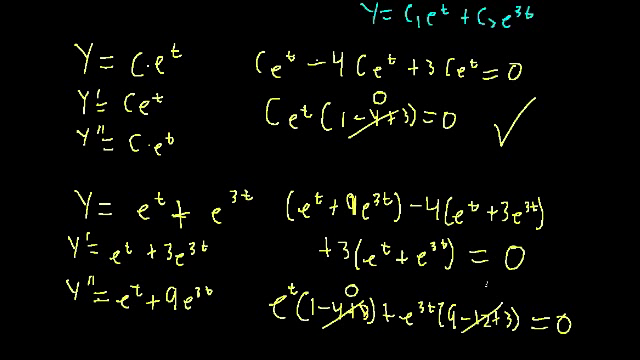 Y = C₁e^t + C₂e^{3t}
Y = C·e^t
Y' = Ce^t
Y'' = C·e^t
Ce^t - 4Ce^t + 3Ce^t = 0
0
Ce^t(1-4+3) = 0 ✓
Y = e^t + e^{3t}
Y' = e^t + 3e^{3t}
Y'' = e^t + 9e^{3t}
(e^t + 9e^{3t}) - 4(e^t + 3e^{3t})
+3(e^t + e^{3t}) = 0
0
e^t(1-4+3) + e^{3t}(9-12+3) = 0